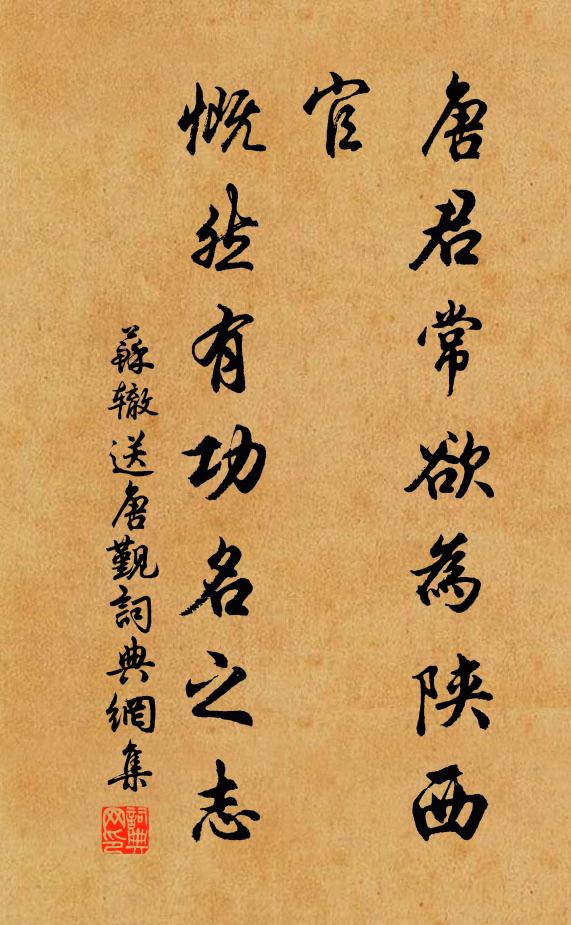 唐君常欲為陕西
官
慨然有功名之志
蘇辙送唐觐詞典網集
詞典网印